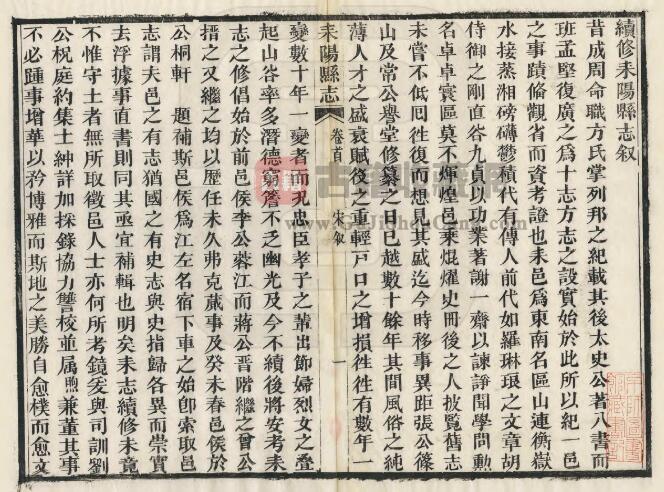 續修耒陽縣志叙
昔成周命職方氏掌列邦之紀載其後太史公著八書而
班孟堅復廣之爲十志方志之設實始於此所以紀一邑
之事蹟俻觀省而資考證也耒邑爲東南名區山連衡嶽
水接蒸湘磅礴鬱積代有傳人前代如羅琳琅之文章胡
侍御之剛直谷九貞以功業著謝一齋以諫諍聞學問勳
名卓卓寰區莫不煇煌邑乘焜燿史冊後之人披覧舊志
未嘗不低囘徃復而想見其盛迄今時移事異距張公篠
山及常公譽堂修纂之日已越數十餘年其間風俗之純
薄人才之盛衰賦役之重輕戸口之增損徃徃有數年一
耒陽縣志
卷首
宋叙
一
變數十年一變者而况忠臣孝子之輩出節婦烈女之叠
起山谷率多潛德窮簷不乏幽光及今不續後將安考耒
志之修倡始於前邑侯李公蓉江而蔣公晋階繼之曾公
搢之又繼之均以歴任未久弗克蕆事及癸未春邑侯於
公桐軒
題補斯邑侯爲江左名宿下車之始卽索取邑
志謂夫邑之有志猶國之有史志與史指歸各異而崇實
去浮據事直書則同其亟宜補輯也明矣耒志續修未竟
不惟守土者無所取徵邑人士亦何所考鏡爰與司訓劉
公枳庭約集士紳詳加採錄協力讐校並属煦兼董其事
不必踵事增華以矜博雅而斯地之美勝自愈樸而愈文